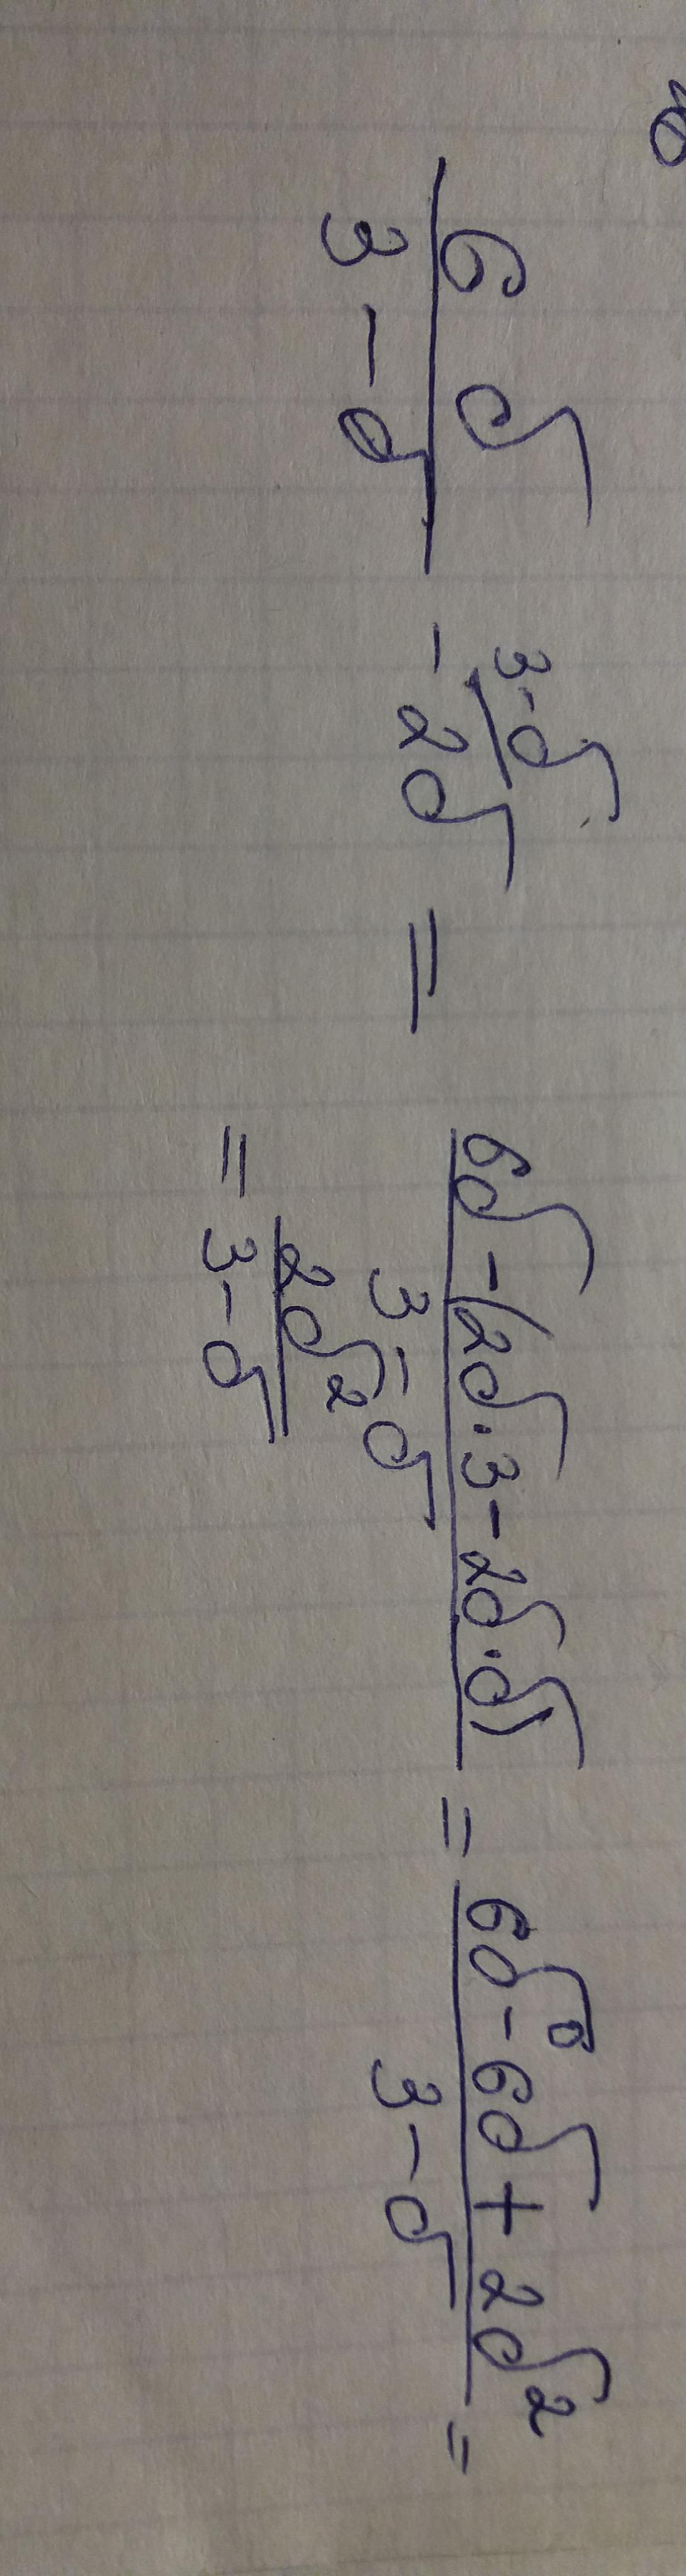 б
6б/3-б - 2б^(3-б = 6б-(2б·3-2б·б)/3-б = 6б-6б+2б²/3-б =
= 2б²/3-б